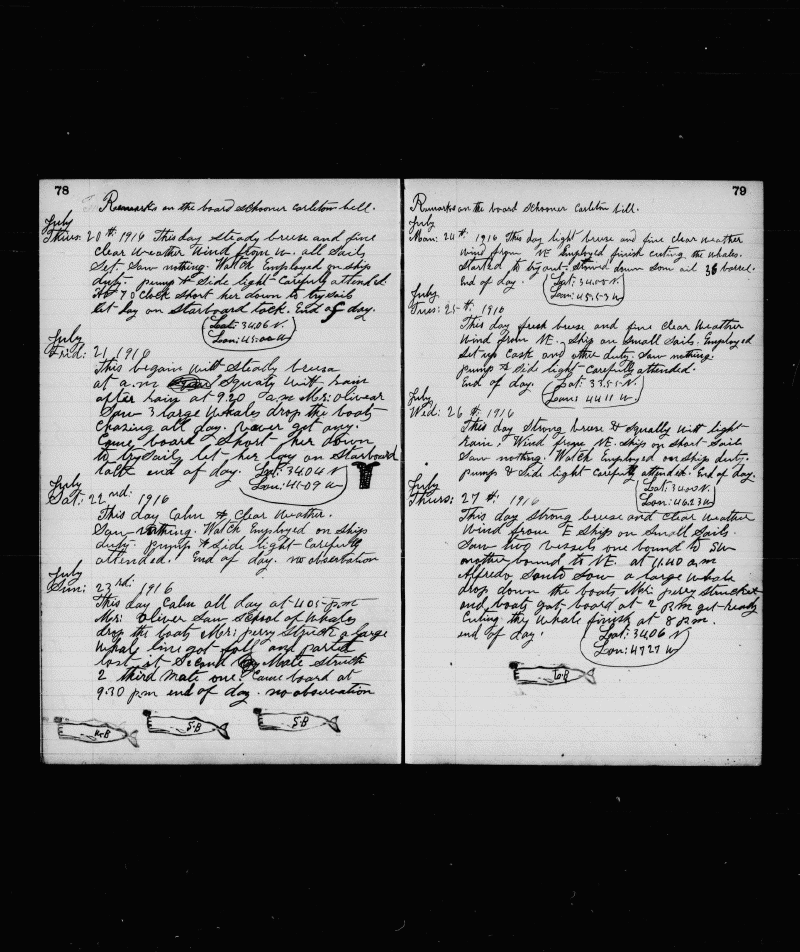 78
Remarks on the board Schooner Carleton bell.
July
Thurs: 20th 1916 This day steady breese and fine
clear weather Wind from W. all Sails
Set. Saw nothing. Watch Employed on ship
duty. pump & Side light Carefully attended.
At 7 O Clock Short her down to trysails
let lay on Starboard tack. End of day.
Lat: 34.06 N.
Lon: 45.00 W
July
Frid: 21 1916
This begain witt Steady breese
at a.m Squaty witt rain
after rain at 9.20 a.m Mr: Olivear
Saw 3 large Whales drop the boats
Chasing all day. never got any.
Came board Short her down
to trysails let her lay on Starboard
tack end of day. Lat: 34.04 N
Lon: 41-09 W
July
Sat: 22nd: 1916
This day Calm & Clear Weather.
Saw nothing. Watch Employed on Ships
duty. pump & Side light Carefully
attended. End of day. no obserbation
July
Sun: 23rd: 1916
This day Calm all day at 4.05 p.m
Mr: Oliver Saw School of Whales
drop the boats Mr: perry Struck a large
Whale line got foll and parted
lost it Second Mate Struck
2 third mate one. Came board at
9.30 p m end of day. no obserbation
B
5-B
5-B
79
Remarks on the board Schooner Carleton bill.
July
Mon: 24th. 1916 This day light breese and fine clear weather
Wind from NE Employed finish cuting the whales.
Started to try out. Stowed down Som oil 36 barrel.
End of day.
Lat: 34.05 N
Lon: 45.53 W
July
Tues: 25th. 1916
This day fresh breese and fine Clear Weather
Wind from NE. Ship on Small Sails. Employed
Set up Cask and other duty. Saw nothing.
pump & Side light Carefully attended.
End of day. Lat: 33.55 N.
Lon: 44.11 W
July
Wed: 26th. 1916
This day Strong breese & Squally witt light
rain. Wind from NE. Ship on Short Sails
Saw nothing. Watch Employed on Ships duty.
pump & Side light Carefully attended. End of day.
Lat: 34.00 N.
Lon: 46.23 W
July
Thurs: 27th: 1916
This day Strong breese and Clear Weather
Wind from E Ship on Small Sails.
Saw two vessels one bound to SW
another bound to NE. at 11.40 a m
Alfredo Santo Saw a large Whale
drop down the boats Mr: perry Strucket
and boats got board at 2 P.M get ready
Cuting they Whale finish at 8 P.M.
end of day.
Lat: 34.06 N
Lon: 47.27 W
B